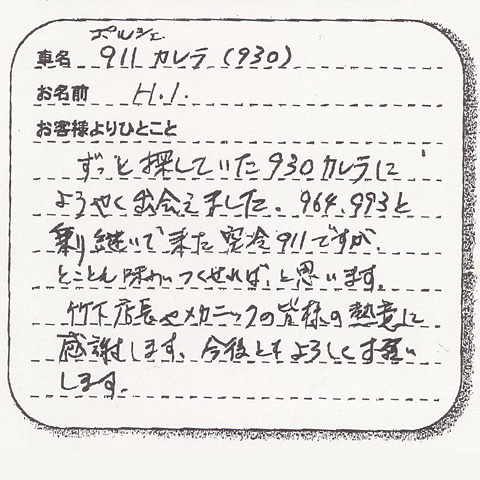 ポルシェ
車名 911 カレラ (930)
お名前 H.I.
お客様よりひとこと
ずっと探していた930カレラに
ようやく出会えました。964、993と
乗り継いで来た空冷911ですが、
とことん味わいつくせれば、と思います。
竹下店長やメカニックの皆様の熱意に
感謝します。今後ともよろしくお願い
します。